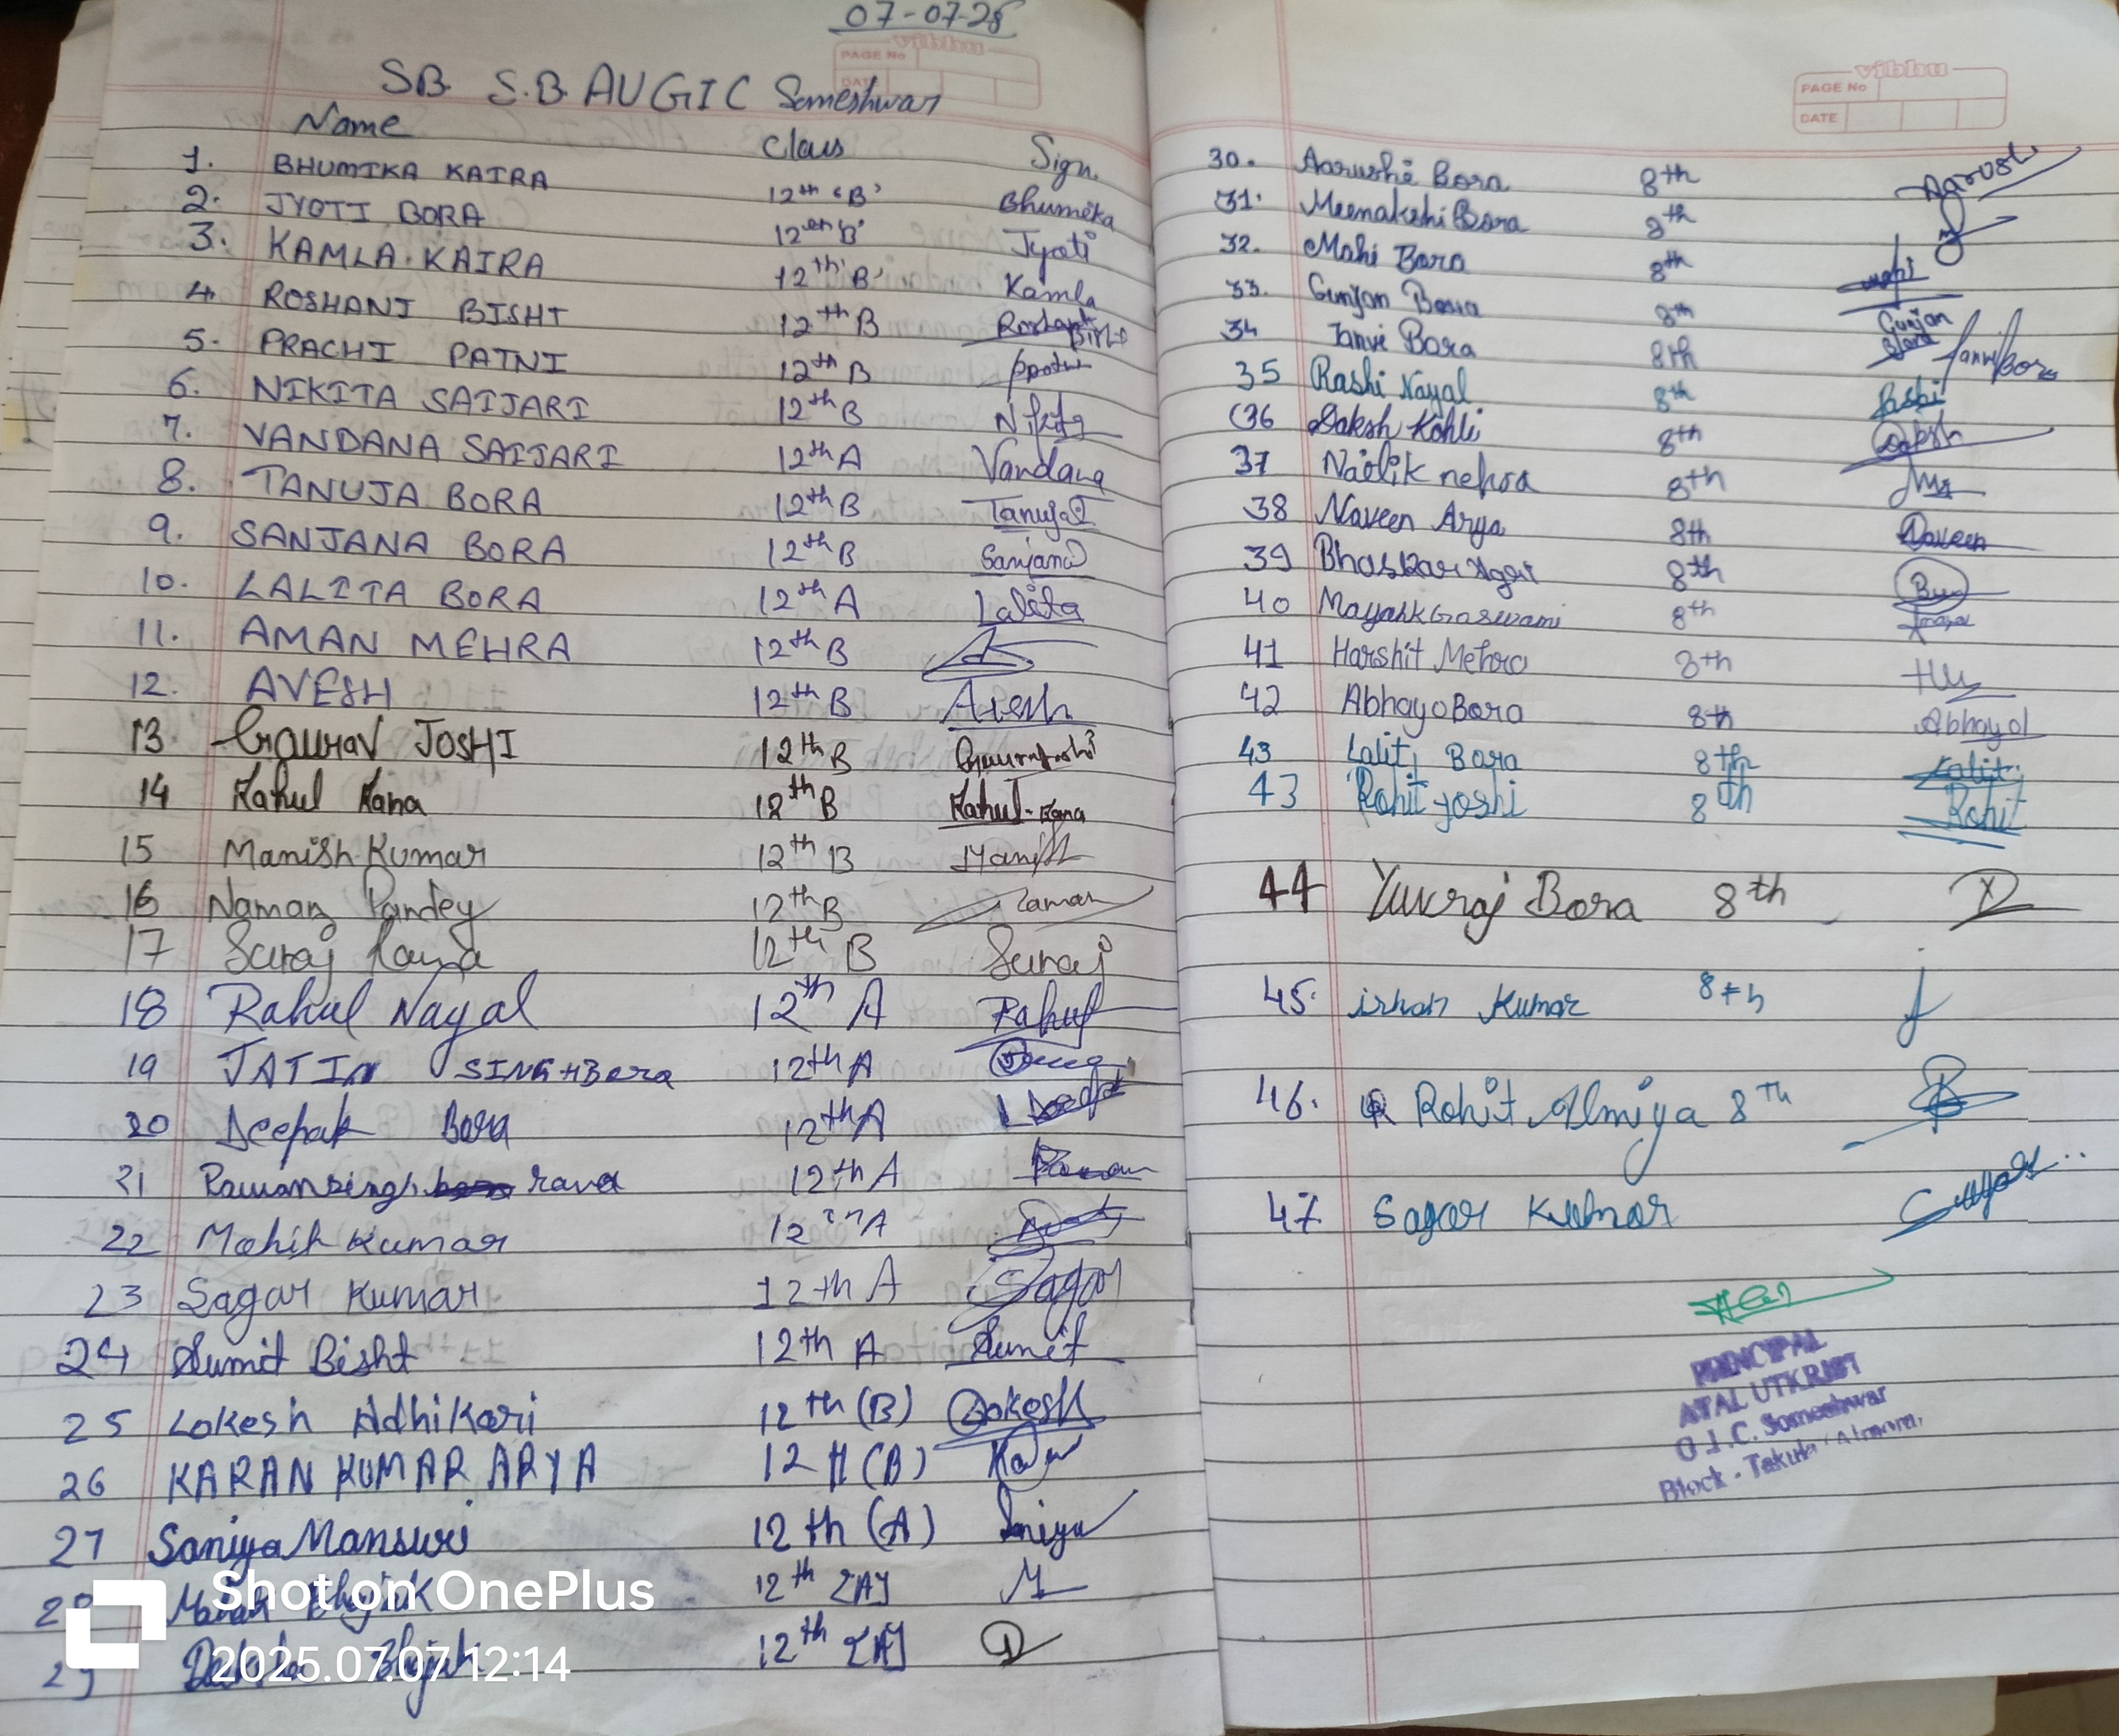 07-07-25
vibhu
PAGE No
DATE
SB. S.B. AUGIC Someshwar
Name Class Sign.
1. BHUMIKA KAIRA 12th 'B' Bhumika
2. JYOTI BORA 12th 'B' Jyoti
3. KAMLA KAIRA 12th 'B' Kamla
4. ROSHANI BISHT 12th B
5. PRACHI PATNI 12th B
6. NIKITA SAIJARI 12th B Nikita
7. VANDANA SAIJARI 12th A Vandana
8. TANUJA BORA 12th B Tanuja
9. SANJANA BORA 12th B Sanjana
10. LALITA BORA 12th A Lalita
11. AMAN MEHRA 12th B
12. AVESH 12th B Avesh
13 Gaurav JOSHI 12th B
14 Rahul Rana 12th B Rahul Rana
15 Manish Kumar 12th B Manish
16 Naman Pandey 12th B Naman
17 Suraj Rana 12th B Suraj
18 Rahul Nayal 12th A Rahul
19 JATIN SINGH Bora 12th A
20 Deepak Bora 12th A
21 Pawan singh rana 12th A
22 Mohit Kumar 12th A
23 Sagar Kumar 12th A Sagar
24 Sumit Bisht 12th A Sumit
25 Lokesh Adhikari 12th (B) Lokesh
26 KARAN KUMAR ARYA 12 (B)
27 Saniya Mansuri 12th (A) Saniya
12th [A] M
29 12th [A] D
Shot on OnePlus
2025.07.07 12:14
vibhu
PAGE No
DATE
30. Aarushi Bora 8th Aarushi
31. Meenakshi Bora 8th
32. Mahi Bora 8th Mahi
33. Gunjan Bora 8th Gunjan Bora
34 Tanvi Bora 8th Tanvi Bora
35 Rashi Nayal 8th Rashi
36 Daksh Kohli 8th Daksh
37 8th
38 Naveen Arya 8th Naveen
39 Bhaskar 8th
40 Mayank Goswami 8th
41 Harshit Mehra 8th
42 Abhay Bora 8th Abhay
43 Lalit Bora 8th Lalit
43 Rohit joshi 8th Rohit
44 Yuvraj Bora 8th
45. Kumar 8th
46. Rohit Almiya 8Th
47 Sagar Kumar Sagar
PRINCIPAL
ATAL UTKRIST
G.I.C. Someshwar
Block - Takula (Almora)